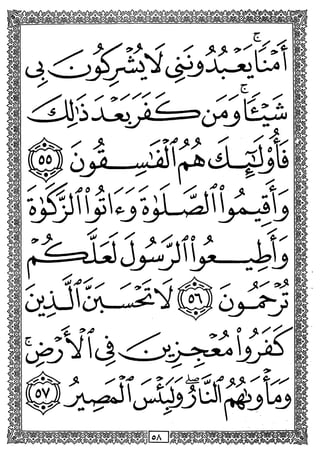 أَمْنًا ۚ يَعْبُدُونَنِى لَا يُشْرِكُونَ بِى
شَيْـًٔا ۚ وَمَن كَفَرَ بَعْدَ ذَٰلِكَ
فَأُو۟لَـٰٓئِكَ هُمُ ٱلْفَـٰسِقُونَ ٥٥
وَأَقِيمُوا۟ ٱلصَّلَوٰةَ وَءَاتُوا۟ ٱلزَّكَوٰةَ
وَأَطِيعُوا۟ ٱلرَّسُولَ لَعَلَّكُمْ
تُرْحَمُونَ ٥٦ لَا تَحْسَبَنَّ ٱلَّذِينَ
كَفَرُوا۟ مُعْجِزِينَ فِى ٱلْأَرْضِ ۚ
وَمَأْوَىٰهُمُ ٱلنَّارُ ۖ وَلَبِئْسَ ٱلْمَصِيرُ ٥٧
٥٨